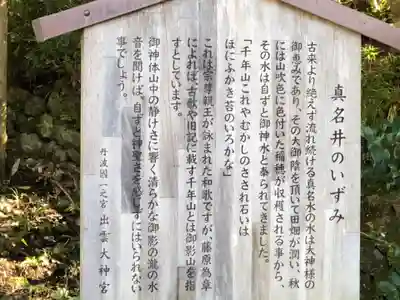 真名井のいずみ
古来より絶えず流れ続ける真名水の水は大神様の
御恵みであり、その大御蔭を頂いて田畑が潤い、秋
には山吹色に色付いた稲穂が収穫される事から、
その水は自ずと御神水と奉られてきました。
「千年山これやむかしのさされ石いは
ほにふかき苔のいろかな」
これは宗尊親王が詠まれた和歌ですが、藤原為章
によれば古歌や旧記に載す千年山とは御影山を指
すとしています。
御神体山中の静けさに響く清らかな御影の滝の水
音を聞けば、自ずと神聖さを感じずにはいられない
事でしょう。
丹波國一之宮 出雲大神宮